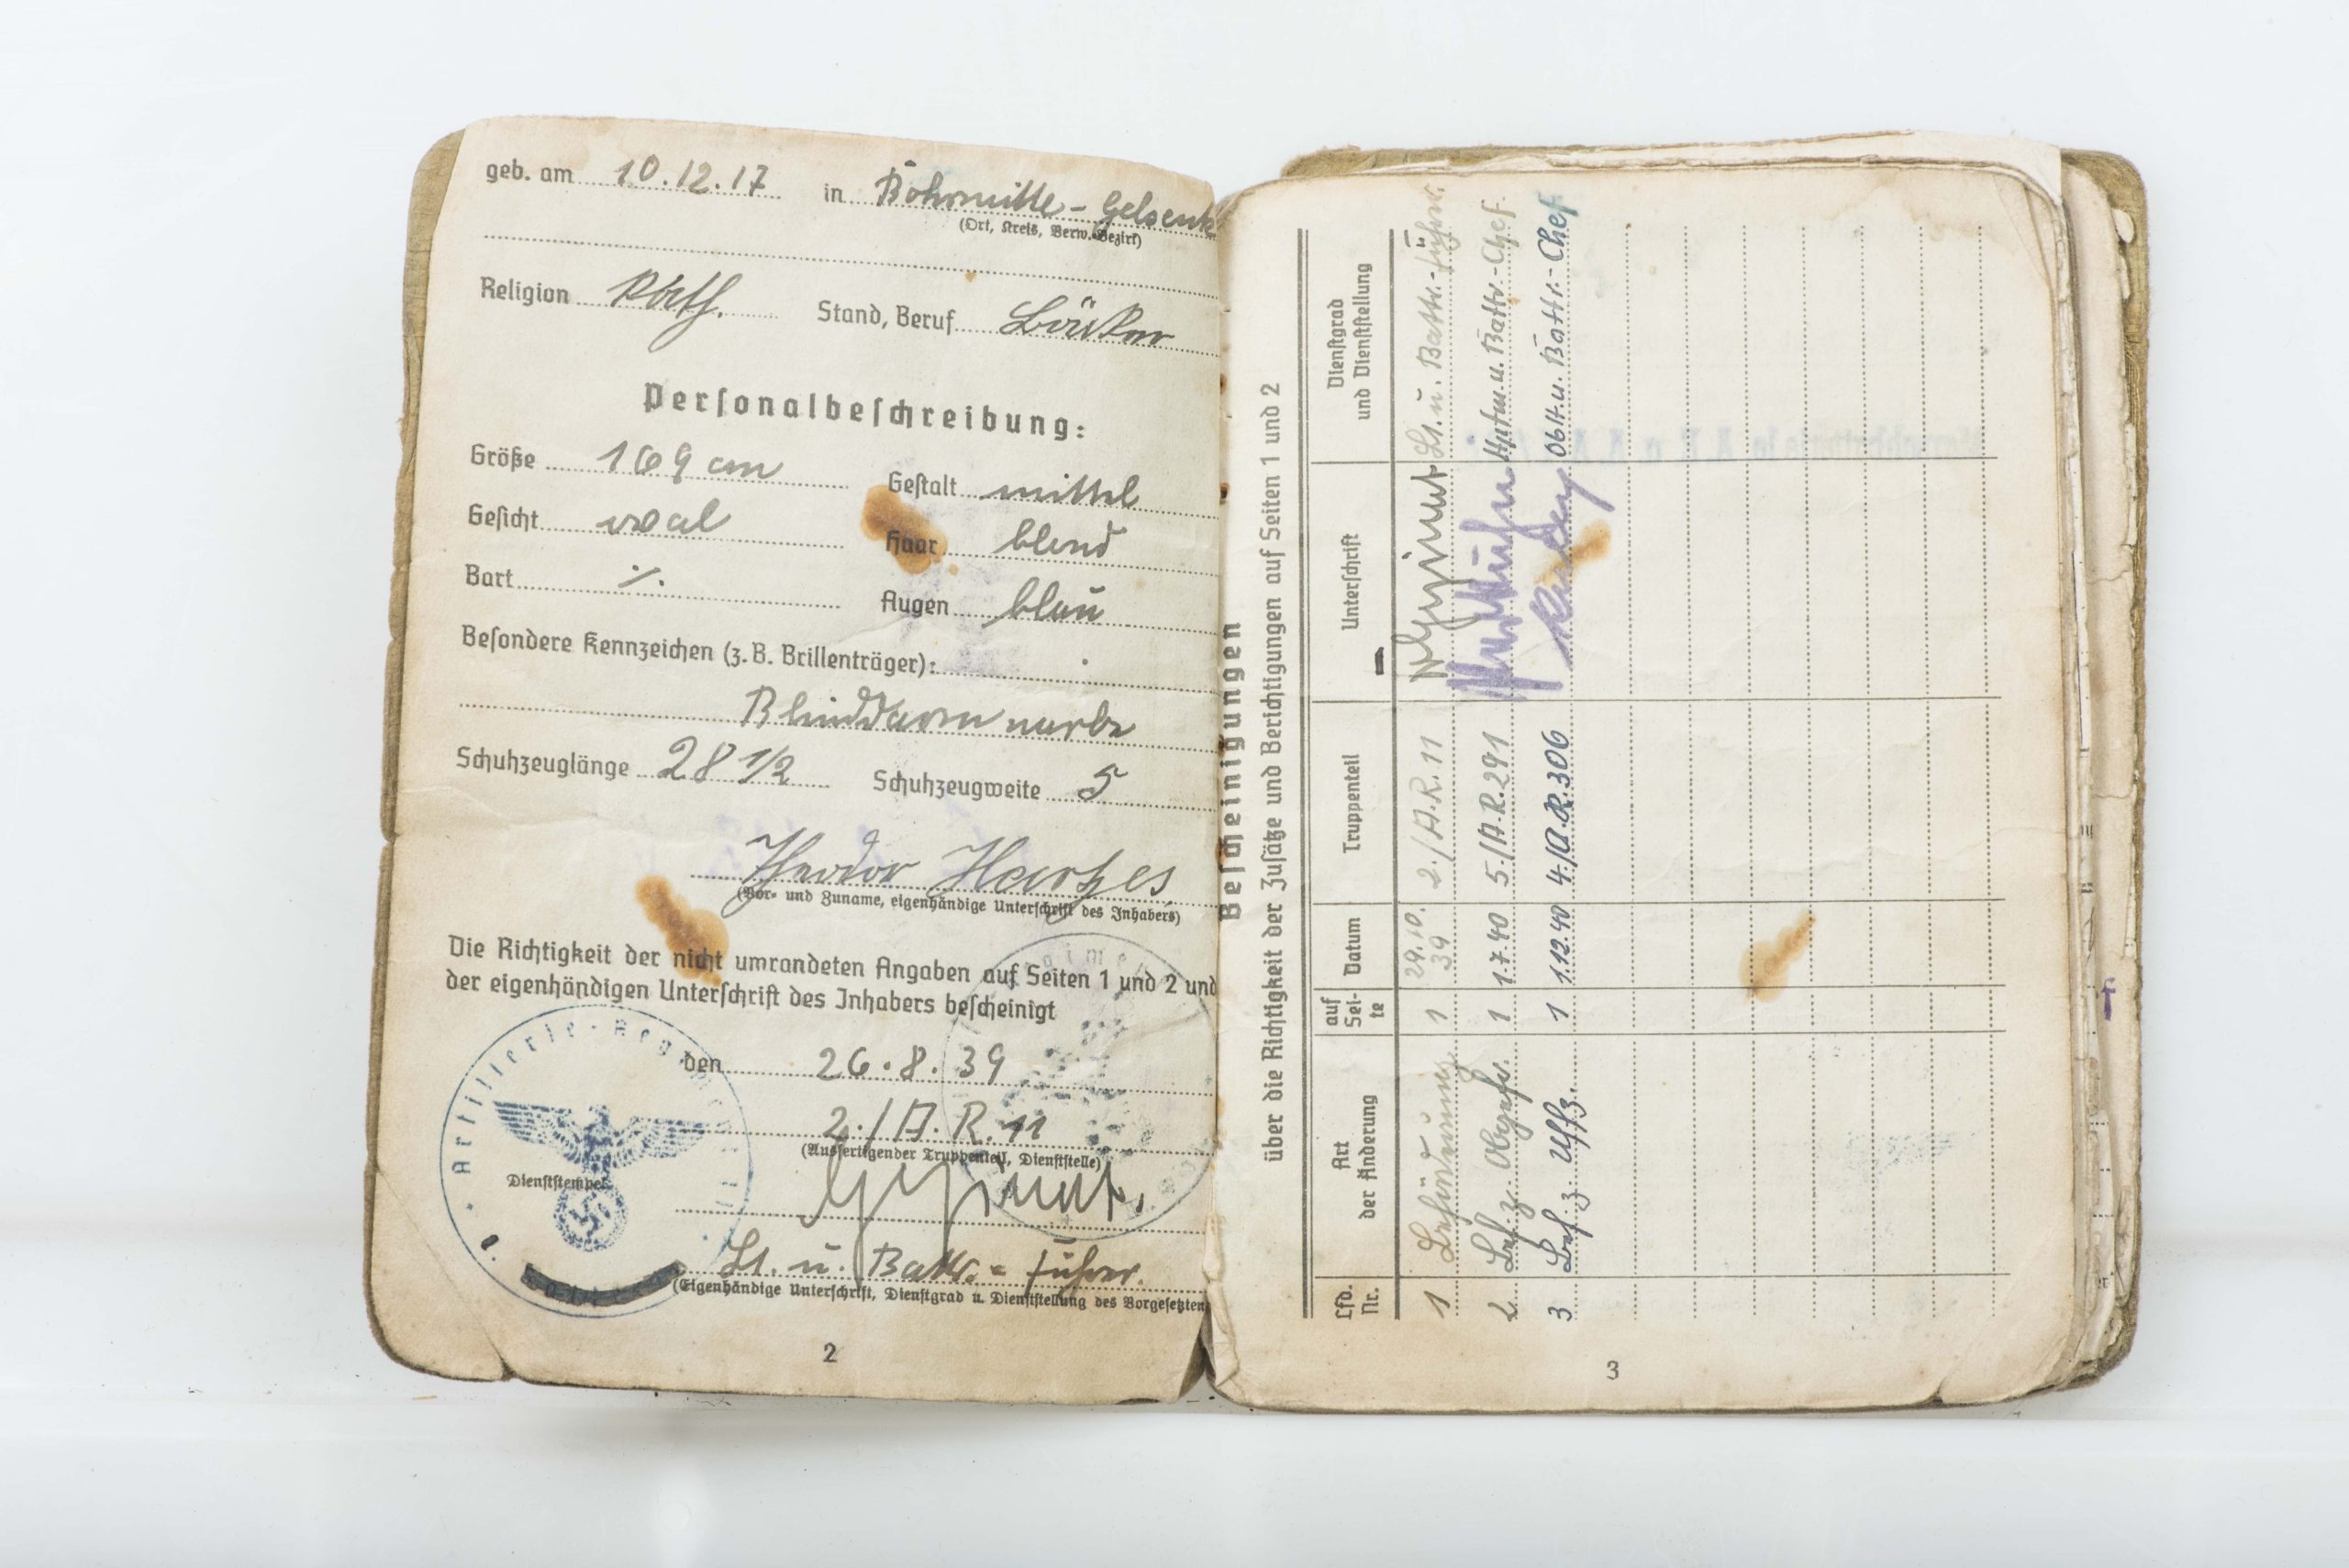 geb. am 10.12.17 in Bohrmitte - Gelsenk
(Ort, Kreis, Verw. Bezirk)
Religion Kath. Stand, Beruf Bäcker
Personalbeſchreibung:
Größe 169 cm Geſtalt mittel
Geſicht oval Haar blond
Bart ./. Augen blau
Beſondere Kennzeichen (z. B. Brillenträger):
Blinddarmnarbe
Schuhzeuglänge 28 1/2 Schuhzeugweite 5
Theodor
(Vor- und Zuname, eigenhändige Unterſchrift des Inhabers)
Die Richtigkeit der nicht umrandeten Angaben auf Seiten 1 und 2 und
der eigenhändigen Unterſchrift des Inhabers beſcheinigt
den 26.8.39
2./A.R.11
(Ausfertigender Truppenteil, Dienſtſtelle)
Artillerie-Reg
Dienſtſtempel
Lt. u. Battr.-Führer.
(Eigenhändige Unterſchrift, Dienſtgrad u. Dienſtſtellung des Vorgeſetzten
2
Beſcheinigungen
über die Richtigkeit der Zuſätze und Berichtigungen auf Seiten 1 und 2
Lfd. Nr. Art der Änderung auf Sei-te Datum Truppenteil Unterſchrift Dienſtgrad und Dienſtſtellung
1 Beförderung 1 29.10.39 2./A.R.11 Lt. u. Battr.-Führer.
2 Bef. z. Obgefr. 1 1.7.40 5./A.R.291 Hptm. u. Battr.-Chef.
3 Bef. z. Uffz. 1 1.12.40 4./A.R.306 Oblt. u. Battr.-Chef
3